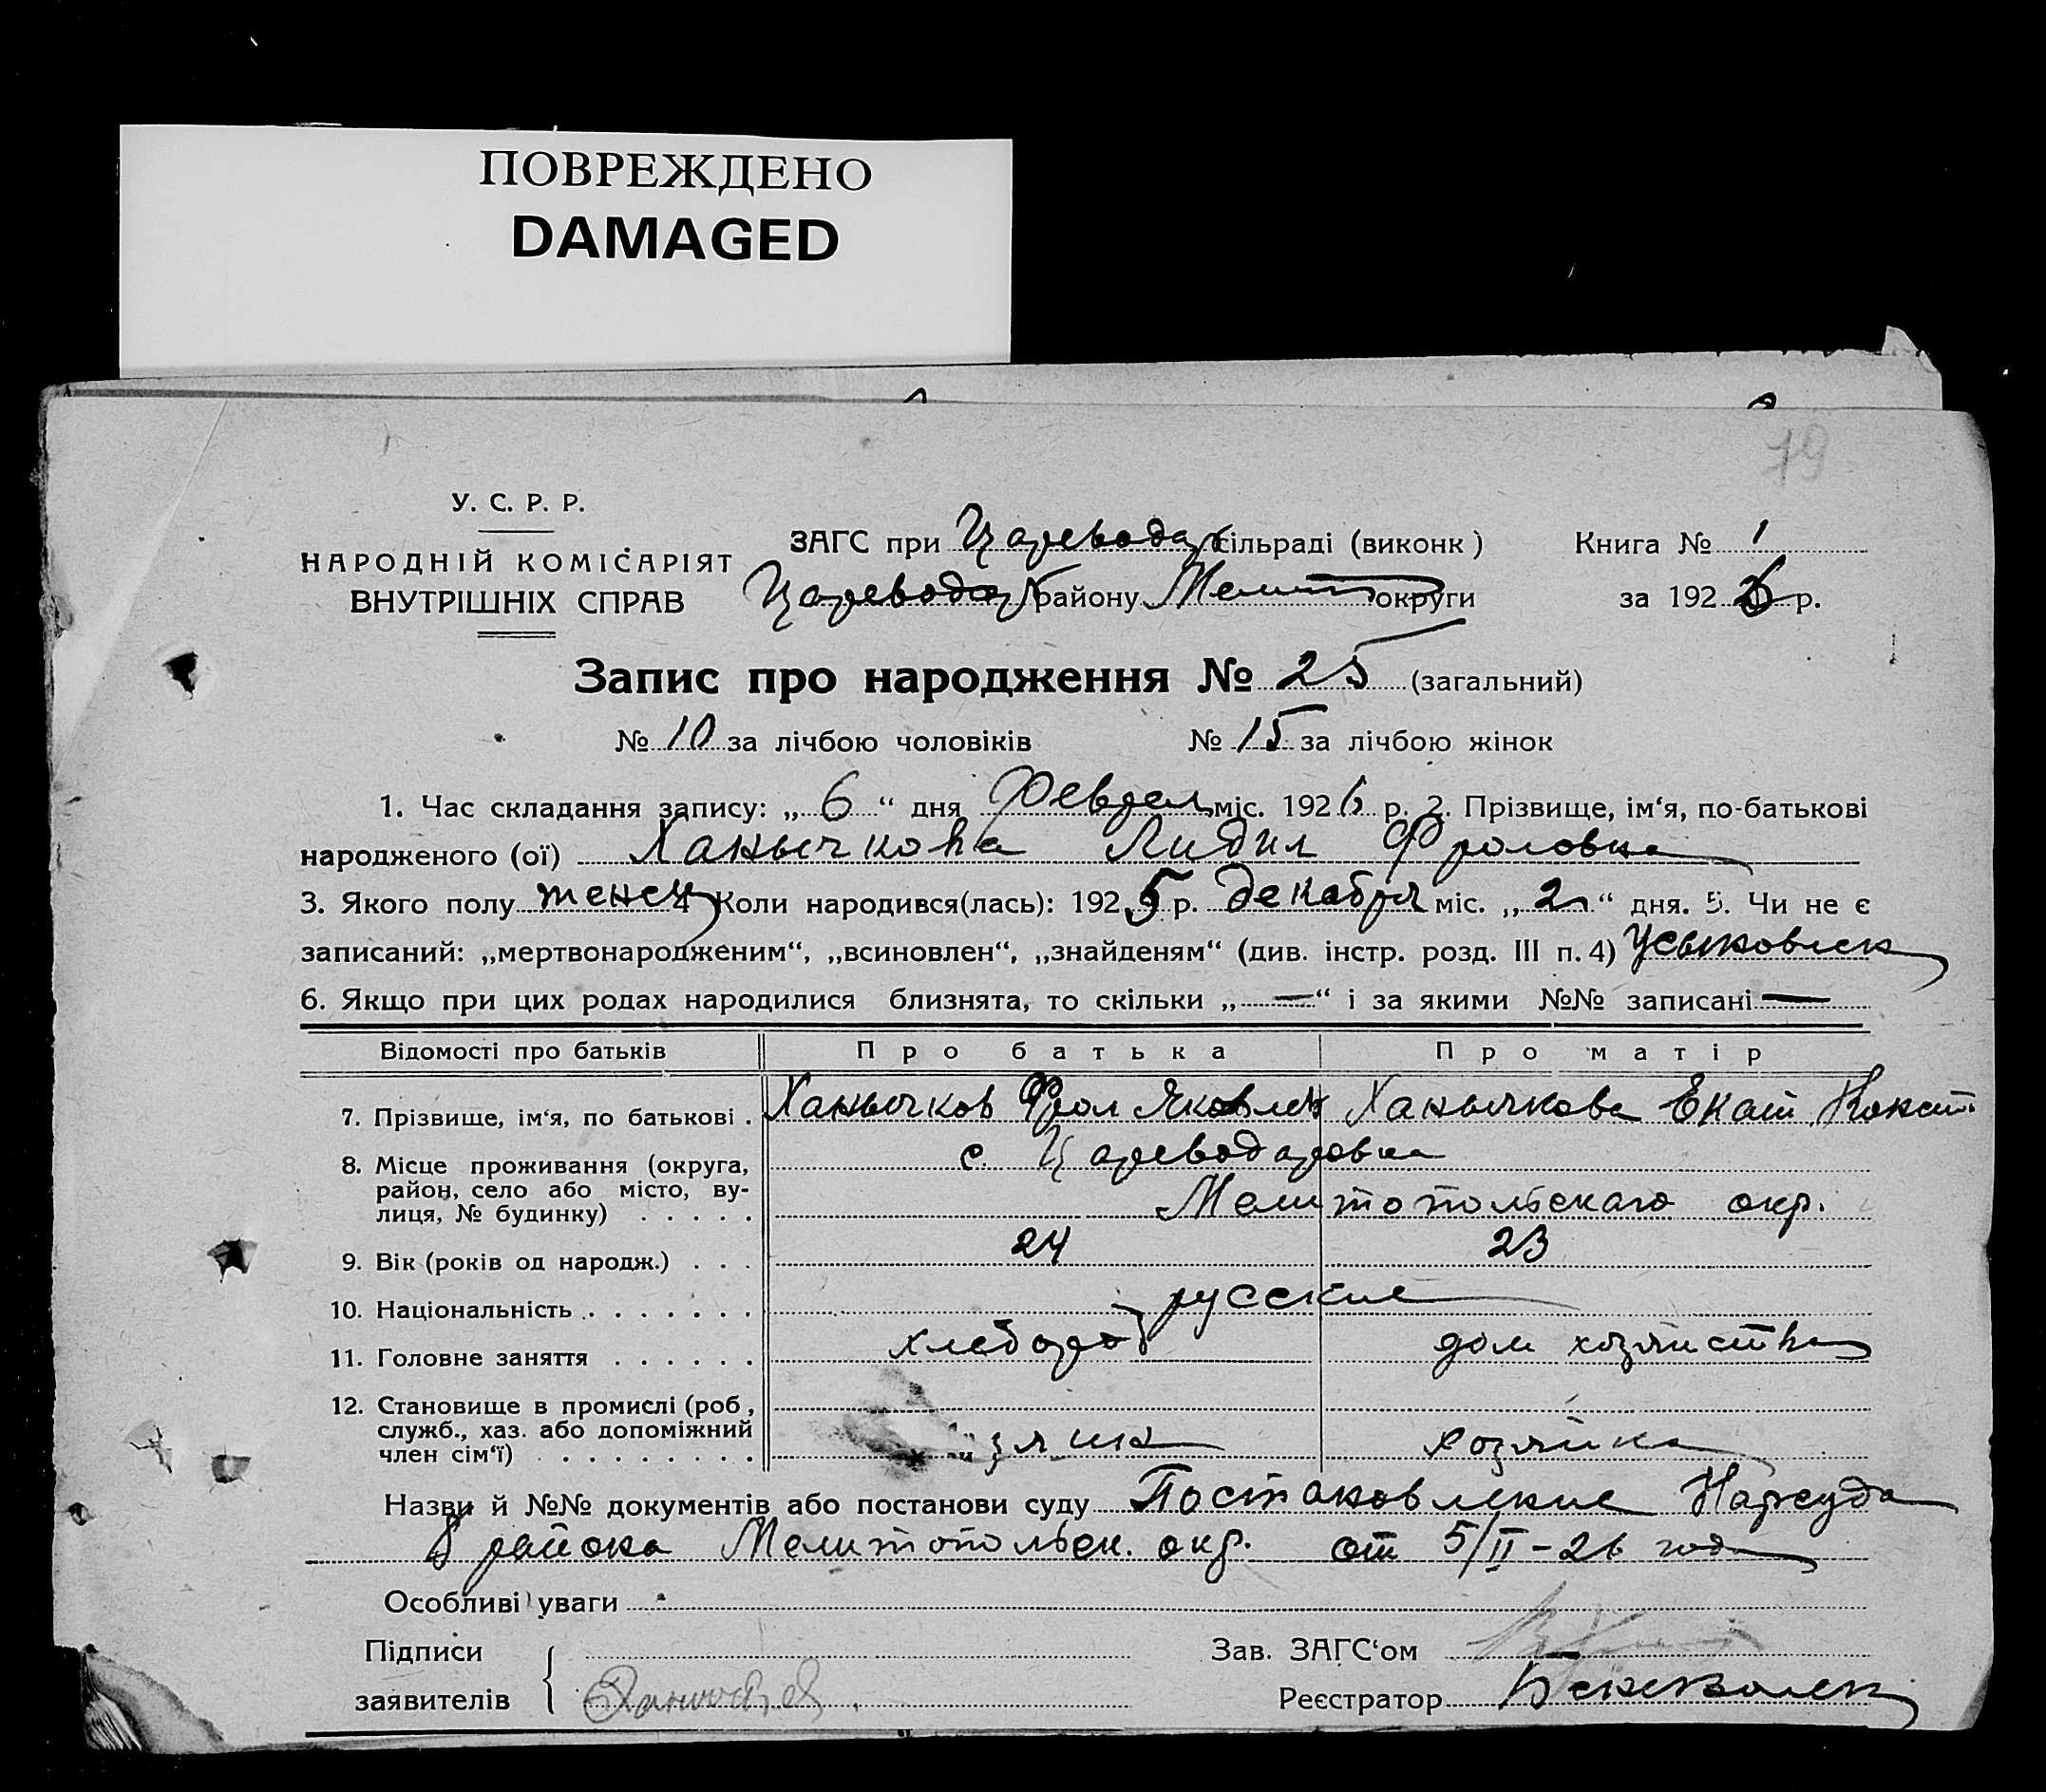 ПОВРЕЖДЕНО
DAMAGED
79
У. С. Р. Р.
НАРОДНІЙ КОМІСАРІЯТ
ВНУТРІШНІХ СПРАВ
ЗАГС при Цареводар сільраді (виконк)
Книга № 1
Цареводар району Мелит округи
за 1926 р.
Запис про народження № 25 (загальний)
№ 10 за лічбою чоловіків № 15 за лічбою жінок
1. Час складання запису: „ 6 “ дня Феврал міс. 1926 р. 2. Прізвище, ім‘я, по-батькові
народженого (ої) Ханычкова Лидия Фроловна
3. Якого полу женск 4 Коли народився(лась): 1925 р. декабря міс. „ 2 “ дня. 5. Чи не є
записаний: „мертвонародженим“, „всиновлен“, „знайденям“ (див. інстр. розд. III п. 4) Усыновлен
6. Якщо при цих родах народилися близнята, то скільки „ — “ і за якими №№ записані —
Відомості про батьків Про батька Про матір
7. Прізвище, ім‘я, по батькові . Ханычков Фрол Яковлев Ханычкова Екат. Конст.
8. Місце проживання (округа, с. Цареводаровка
район, село або місто, ву-
лиця, № будинку) . . . . . Мелитопольского окр.
9. Вік (років од народж.) . . . 24 23
10. Національність . . . . . . . русские
11. Головне заняття . . . . . . хлебороб дом хозяйства
12. Становище в промислі (роб,
служб., хаз. або допоміжний
член сім‘ї) . . . . . . . . . хозяйка
Назви й №№ документів або постанови суду Постановление Нарсуда
8 района Мелитопольск. окр. от 5/II-26 года
Особливі уваги
Підписи
заявителів
Зав. ЗАГС‘ом
Реєстратор